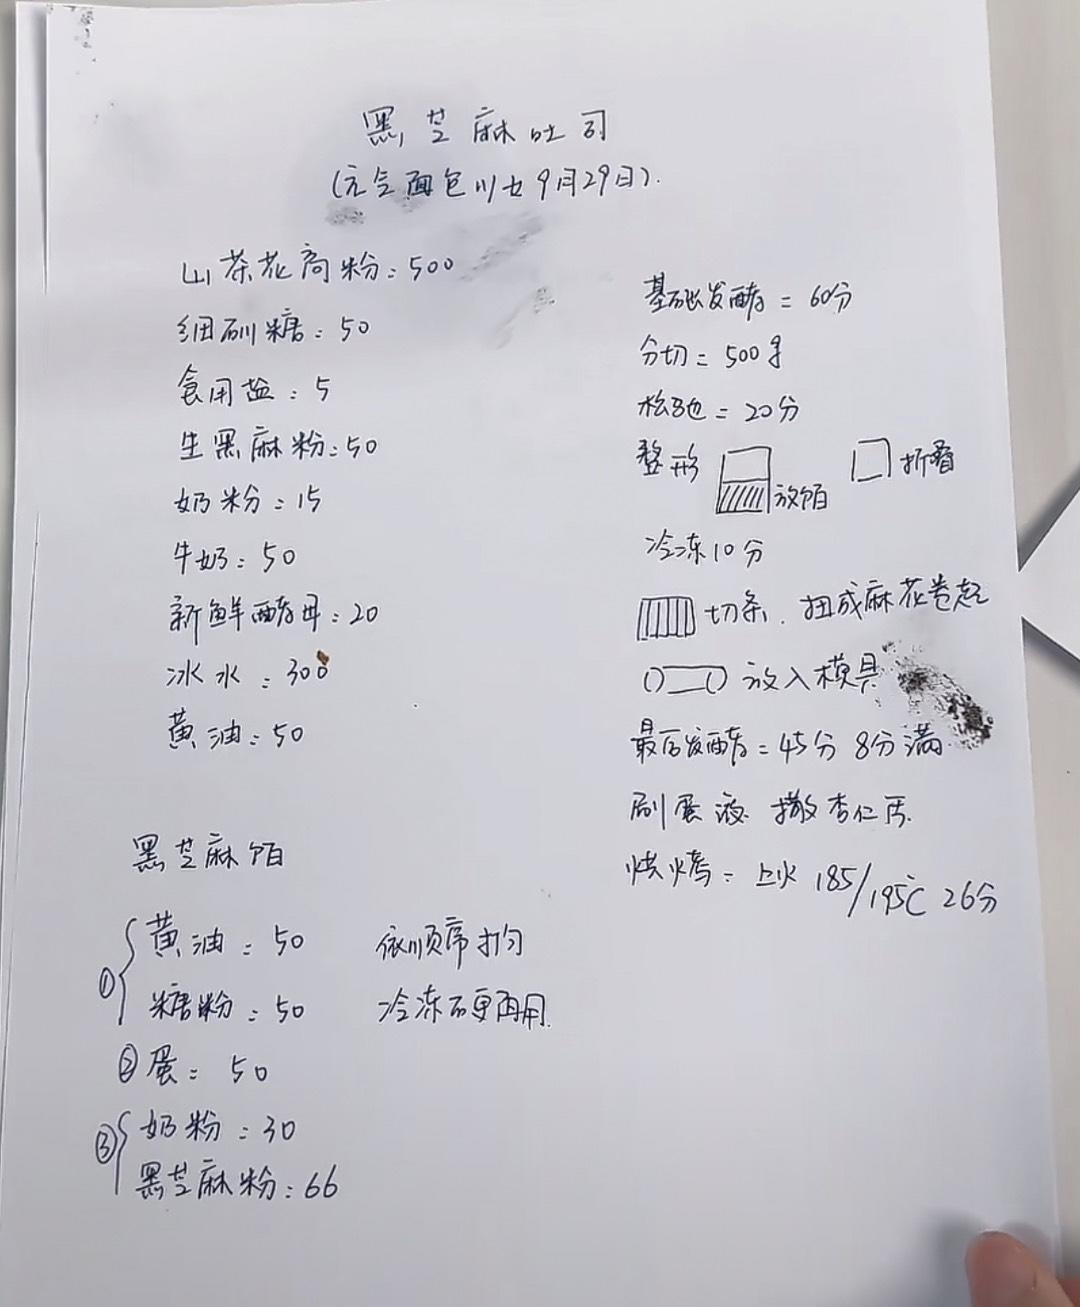 黑芝麻吐司
(元气面包川七9月29日).
山茶花高粉:500
细砂糖:50
食用盐:5
生黑麻粉:50
奶粉:15
牛奶:50
新鲜酵母:20
冰水:300
黄油:50
黑芝麻馅
①黄油:50 依顺序打匀
糖粉:50 冷冻石更再用.
②蛋:50
③奶粉:30
黑芝麻粉:66
基础发酵=60分
分切=500g
松弛=20分
整形 放馅 折叠
冷冻10分
切条.扭成麻花卷起
放入模具
最后发酵=45分 8分满.
刷蛋液 撒杏仁片.
烘烤:上火 185/195℃ 26分